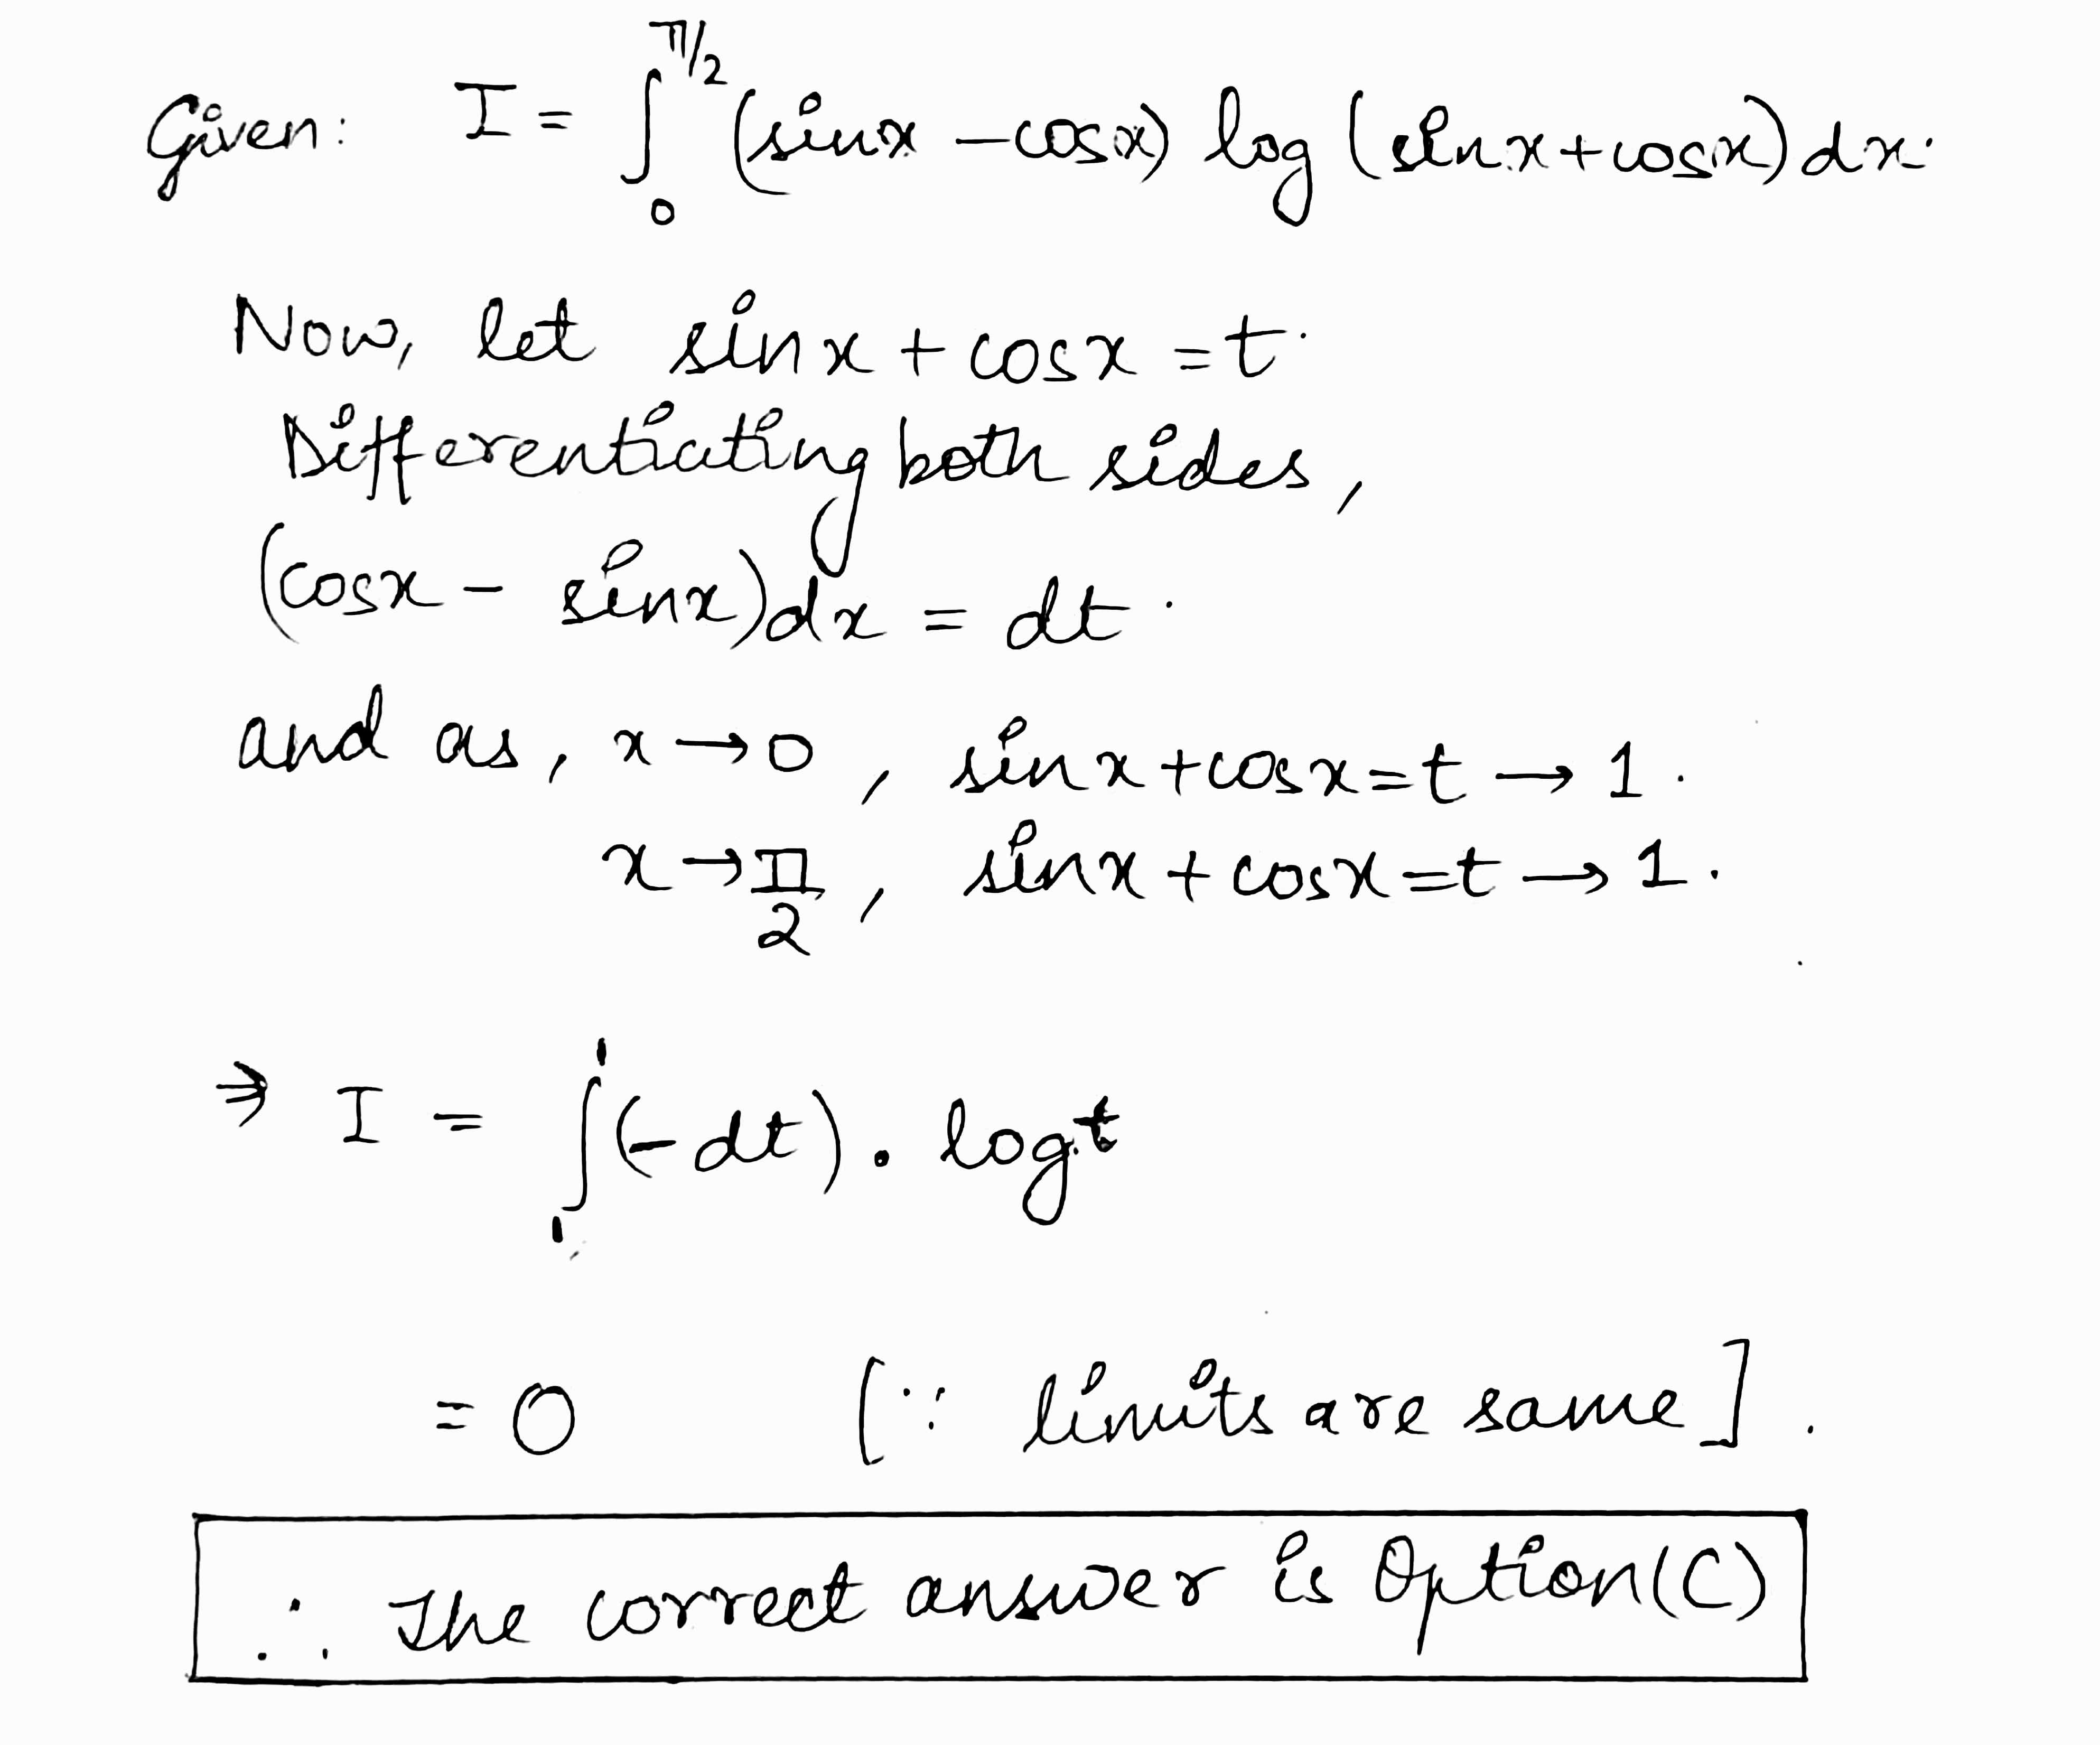 Given: I = ∫₀^{π/2} (sinx − cosx) log (sinx + cosx) dx.
Now, let sinx + cosx = t.
Differentiating both sides,
(cosx − sinx)dx = dt.
and as, x → 0, sinx + cosx = t → 1.
x → π/2, sinx + cosx = t → 1.
⇒ I = ∫₁¹ (−dt). log t
= 0 [∵ limits are same].
∴ The correct answer is Option(C)